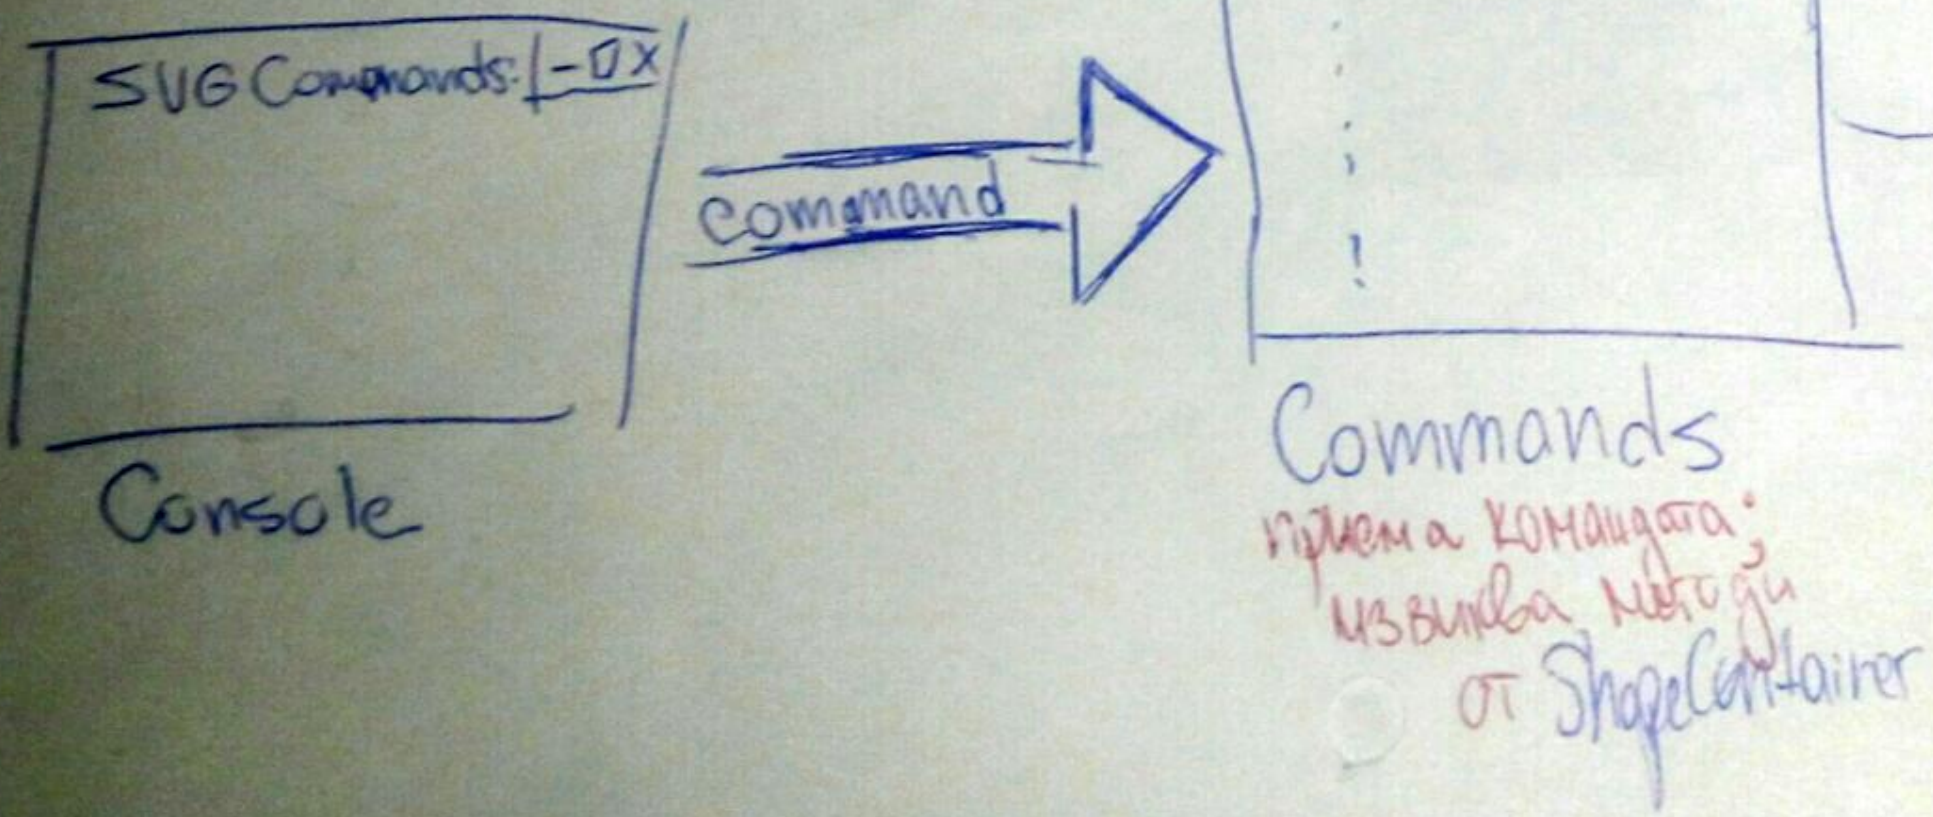 SVG Commands: - □ x
command
Console
Commands
приема командата;
извиква методи
от ShapeContainer